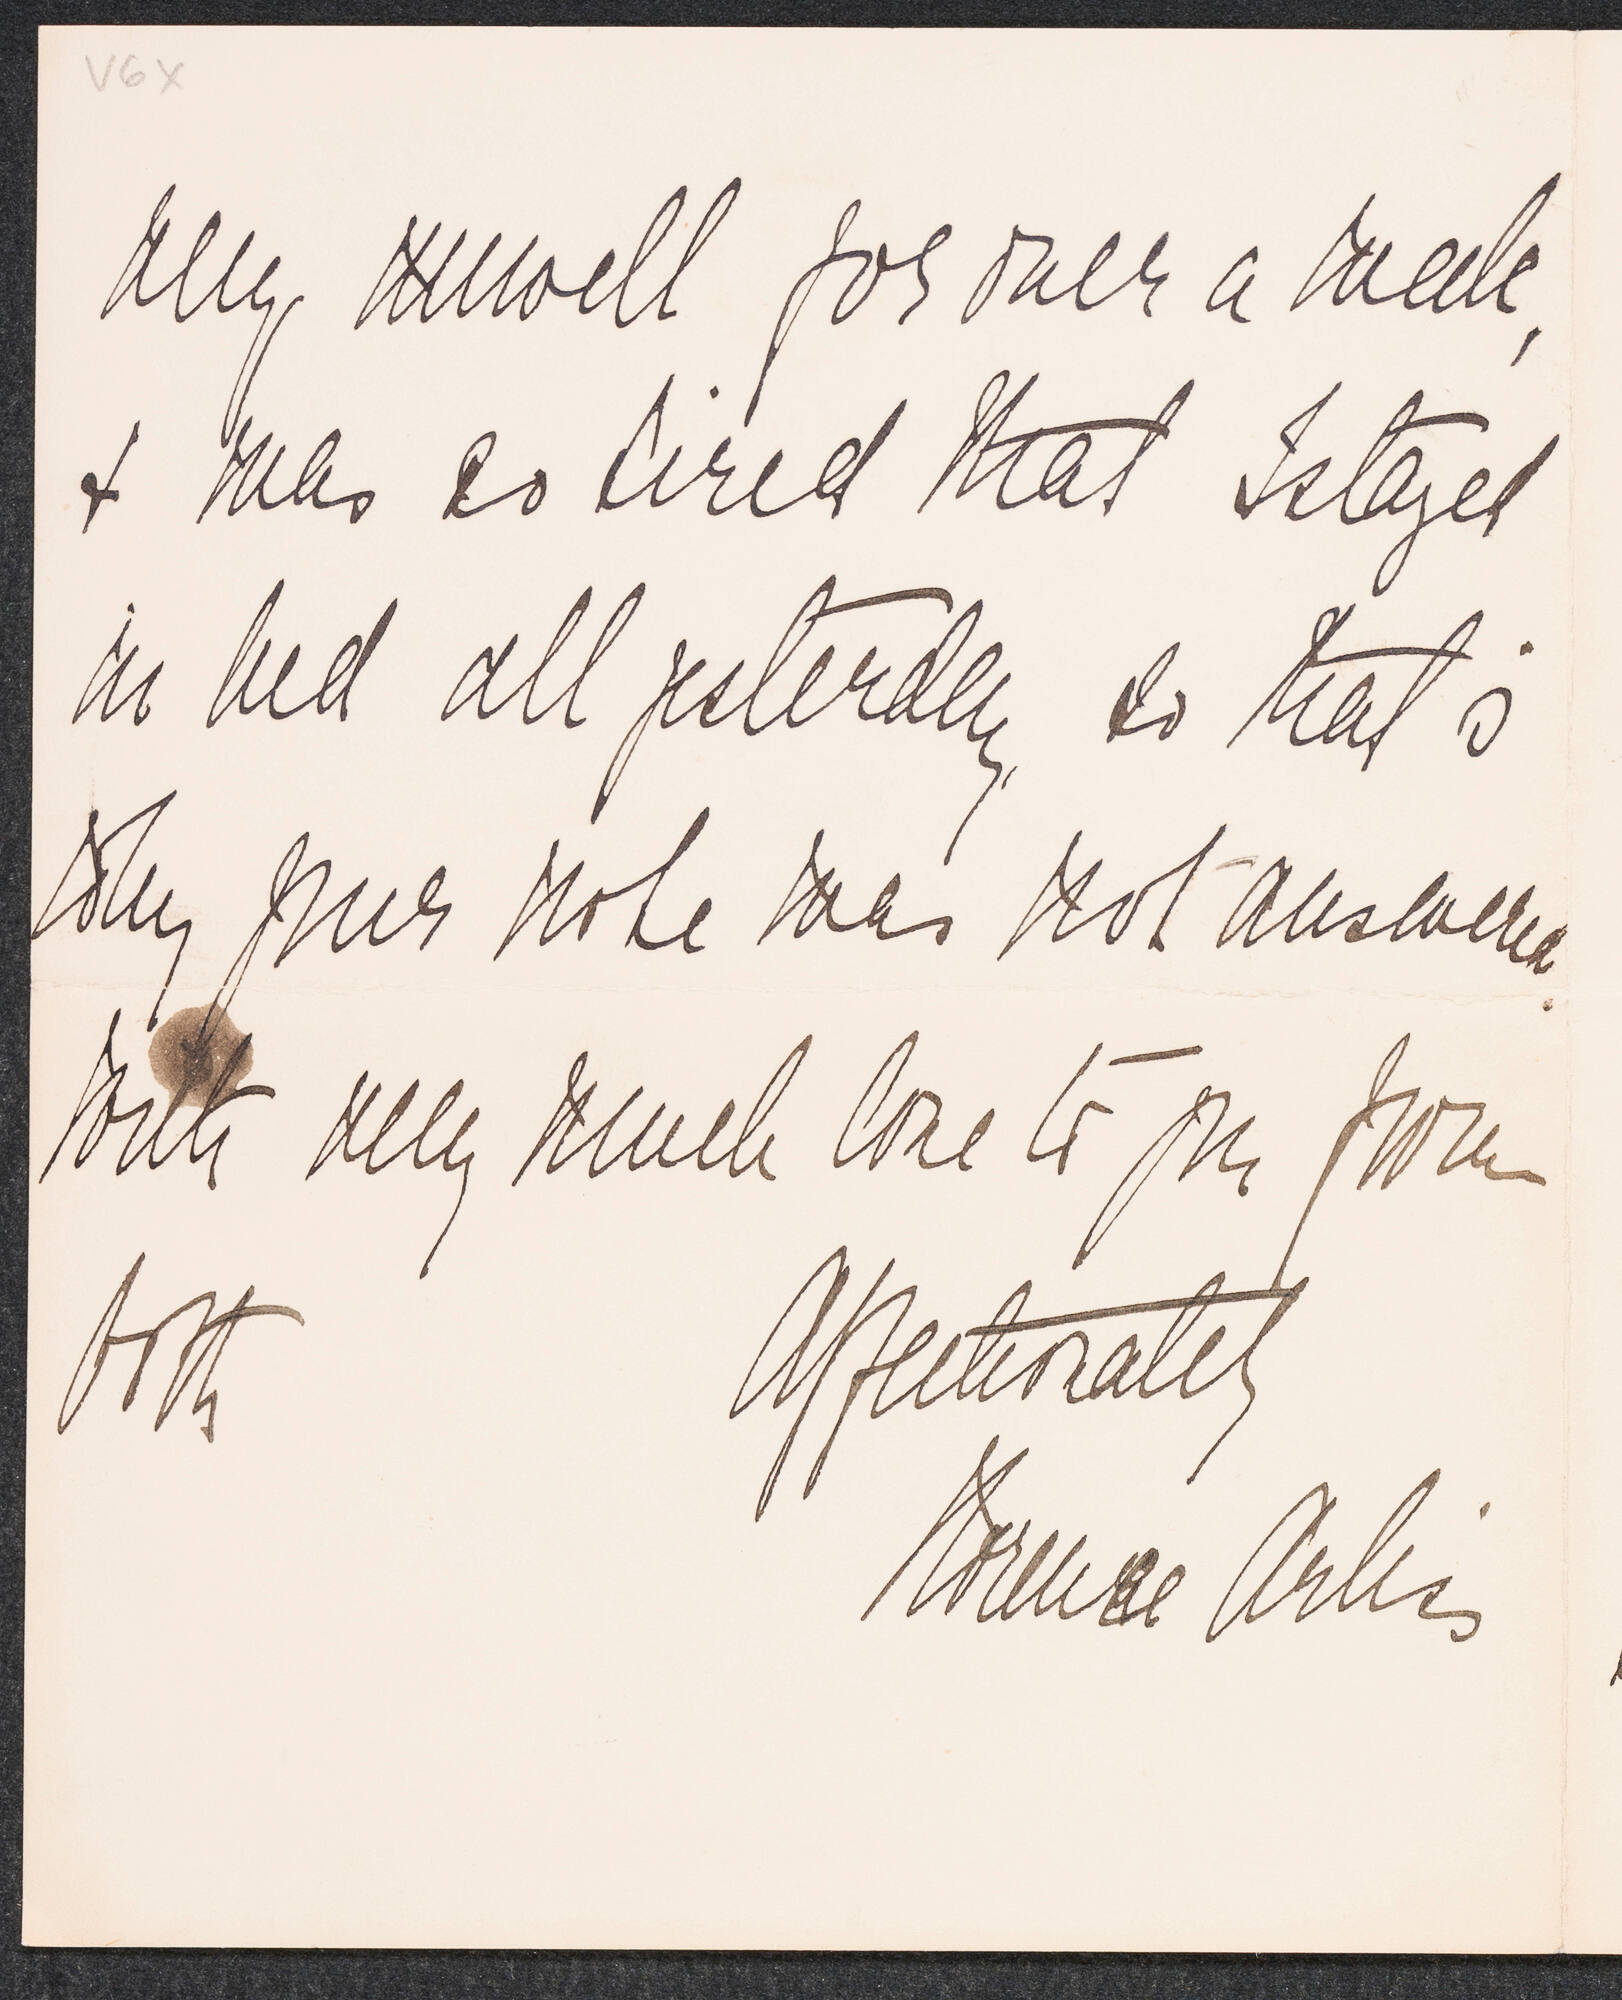 V6X
very unwell for over a week,
& was so tired that I stayed
in bed all yesterday, so that is
why your note was not answered.
With very much love to you from
both
Affectionately
Florence